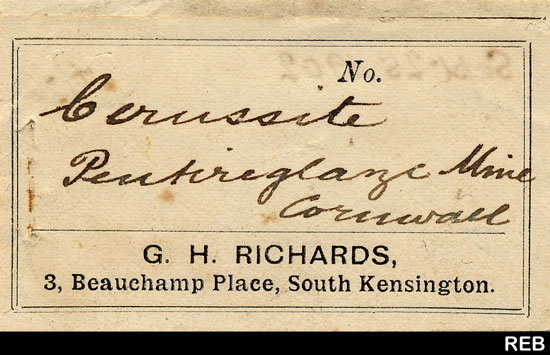 No.
Cerussite
Pentireglaze Mine
Cornwall
G. H. RICHARDS,
3, Beauchamp Place, South Kensington.
REB